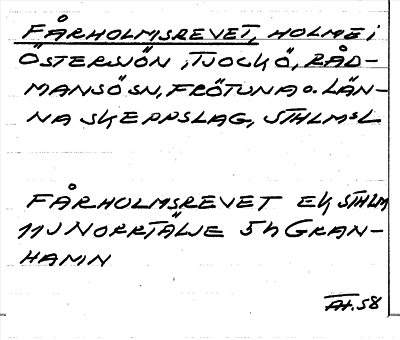 FÅRHOLMSREVET, HOLME i
ÖSTERSJÖN, TJOCKÖ, RÅD-
MANSÖ SN, FRÖTUNA O. LÄN-
NA SKEPPSLAG, STHLMS L
FÅRHOLMSREVET EK STHLM
11J NORRTÄLJE 5h GRAN-
HAMN
At. 58